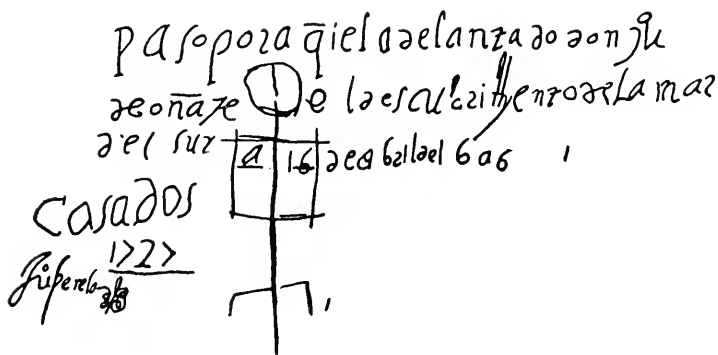 paso por aq̄i el adelantado don ju
de oñate [d]e l descubrimiento de la mar
del sur a 16 de abril del 606
Casados
1727